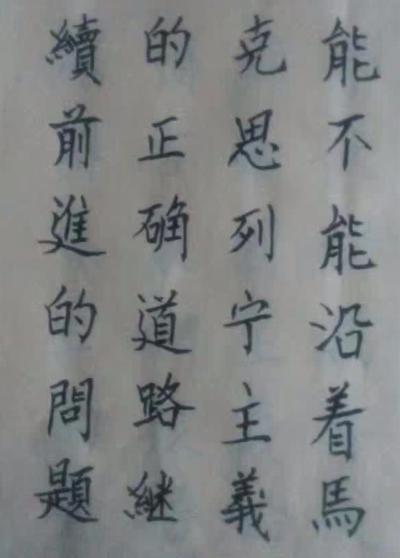 能不能沿着馬
克思列宁主義
的正确道路継
續前進的問題